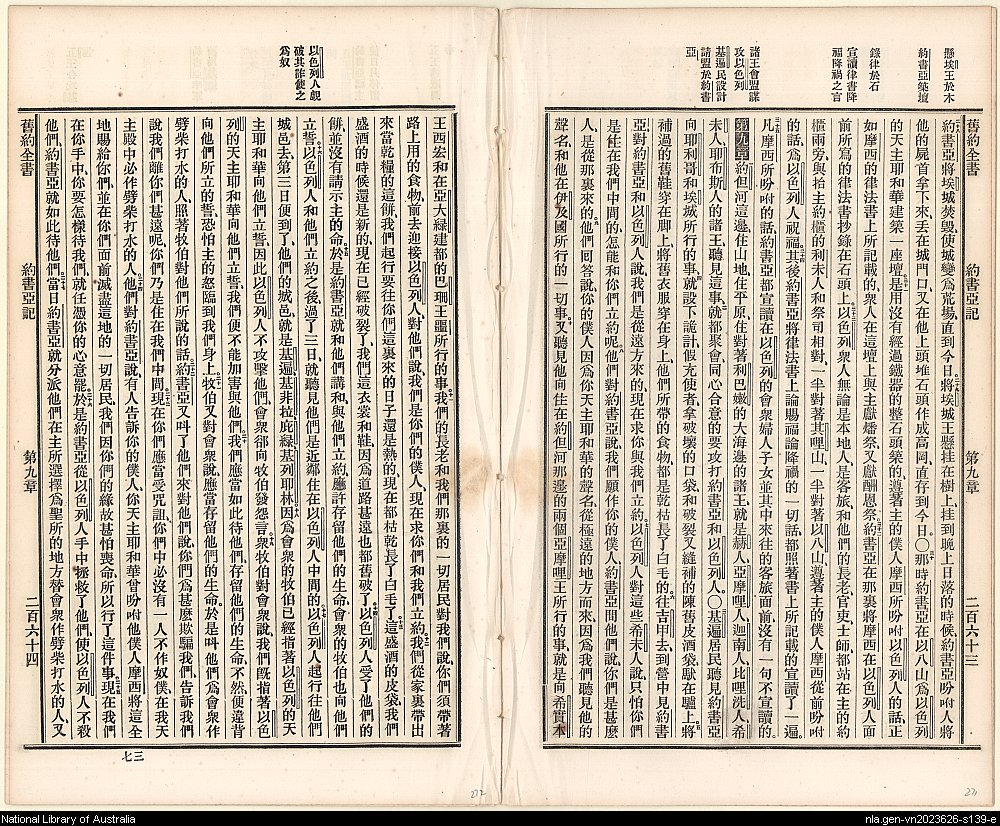 懸埃王於木
約書亞築壇
錄律於石
宣讀律書降
福降禍之言
諸王會盟謀
攻以色列
基遍民設計
請盟於約書
亞
舊約全書 約書亞記 第九章 二百六十三
約書亞將埃城焚毀使城變爲荒場直到今日將埃城王懸挂在樹上挂到晚上日落的時候約書亞吩咐人將
他的屍首拿下來丟在城門口又在他上頭堆石頭作成高岡直存到今日〇那時約書亞在以八山爲以色列
的天主耶和華建築一座壇是用沒有經過鐵器的整石頭築的遵著主的僕人摩西所吩咐以色列人的話正
如摩西的律法書上所記載的衆人在這壇上與主獻燔祭又獻酬恩祭約書亞在那裏將摩西在以色列人面
前所寫的律法書抄錄在石頭上以色列衆人無論是本地人是客旅和他們的長老官吏士師都站在主的約
櫃兩旁與抬主約櫃的利未人和祭司相對一半對著其哩山一半對著以八山遵著主的僕人摩西從前吩咐
的話爲以色列人祝福其後約書亞將律法書上論賜福論降禍的一切話都照著書上所記載的宣讀了一遍
凡摩西所吩咐的話約書亞都宣讀在以色列的會衆婦人子女並其中來往的客旅面前沒有一句不宣讀的
第九章約但河這邊住山地住平原住對著利巴嫩的大海邊的諸王就是赫人亞摩哩人迦南人比哩洗人希
未人耶布斯人的諸王聽見這事就都聚會同心合意的要攻打約書亞和以色列人〇基遍居民聽見約書亞
向耶利哥和埃城所行的事就設下詭計假充使者拿破壞的口袋和破裂又縫補的陳舊皮酒袋馱在驢上將
補過的舊鞋穿在脚上將舊衣服穿在身上他們所帶的食物都是乾枯長了白毛的往吉甲去到營中見約書
亞對約書亞和以色列人說我們是從遠方來的現在求你與我們立約以色列人對這些希未人說只怕你們
是住在我們中間的怎能和你們立約呢他們對約書亞說我們願作你的僕人約書亞問他們說你們是甚麼
人是從那裏來的他們回答說你的僕人因爲你天主耶和華的聲名從極遠的地方而來因爲我們聽見他的
聲名和他在伊及國所行的一切事又聽見他向住在約但河那邊的兩個亞摩哩王所行的事就是向希實本
以色列人覘
破其詐使之
爲奴
王西宏和在亞大綠建都的巴珊王噩所行的事我們的長老和我們那裏的一切居民對我們說你們須帶著
路上用的食物前去迎接以色列人對他們說我們是你們的僕人現在求你們和我們立約我們從家裏帶出
來當乾糧的這餅我們起行要往你們這裏來的日子還是熱的現在都枯乾長了白毛了這盛酒的皮袋我們
盛酒的時候還是新的現在已經破裂了我們這衣裳和鞋因爲道路甚遠也都舊破了以色列人受了他們的
餅並沒有請示主的命於是約書亞就和他們講和與他們立約應許存留他們的生命會衆的牧伯也向他們
立誓以色列人和他們立約之後過了三日就聽見他們是近鄰住在以色列人中間的以色列人起行往他們
城邑去第三日便到了他們的城邑就是基遍基非拉庇綠基列耶林因爲會衆的牧伯已經指著以色列的天
主耶和華向他們立誓因此以色列人不攻擊他們會衆卻向牧伯發怨言衆牧伯對會衆說我們旣指著以色
列的天主耶和華向他們立誓我們便不能加害與他們我們應當如此待他們存留他們的生命不然便違背
向他們所立的誓恐怕主的忿怒臨到我們身上牧伯又對會衆說應當存留他們的生命於是叫他們爲會衆作
劈柴打水的人照著牧伯對他們所說的話約書亞又呌了他們來對他們說你們爲甚麼欺騙我們吿訴我們
說我們離你們甚遠呢你們乃是住在我們中間現在你們應當受咒詛你們中必沒有一人不作奴僕在我天
主殿中必作劈柴打水的人他們對約書亞說有人吿訴你的僕人你天主耶和華曾吩咐他僕人摩西將這全
地賜給你們並在你們面前滅盡這地的一切居民我們因你們的緣故甚怕喪命所以行了這件事現在我們
在你手中你要怎樣待我們就任憑你的心意罷於是約書亞從以色列人手中拯救了他們使以色列人不殺
他們約書亞就如此待他們當日約書亞就分派他們在主所選擇爲聖所的地方替會衆作劈柴打水的人又
舊約全書 約書亞記 第九章 二百六十四
七三
272
271
National Library of Australia
nla.gen-vn2023626-s139-e